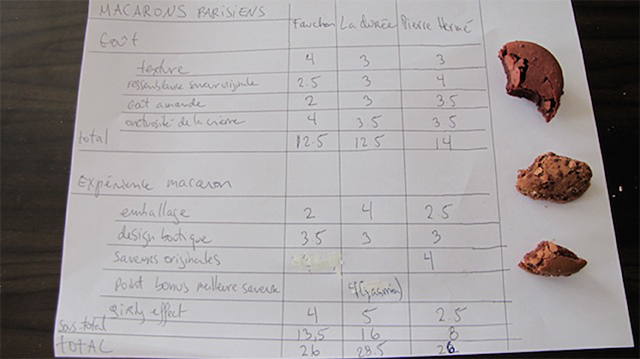 MACARONS PARISIENS Fauchon La durée Pierre Hermé
Goût
texture 4 3 3
ressemblance saveur originale 2.5 3 4
Goût amande 2 3 3.5
onctuosité de la crème 4 3.5 3.5
total 12.5 12.5 14
Expérience macaron
emballage 2 4 2.5
design boutique 3.5 3 3
saveurs originales 4
point bonus meilleure saveur 4 (jasmin)
girly effect 4 5 2.5
sous total 13,5 16 8
TOTAL 26 28.5 26